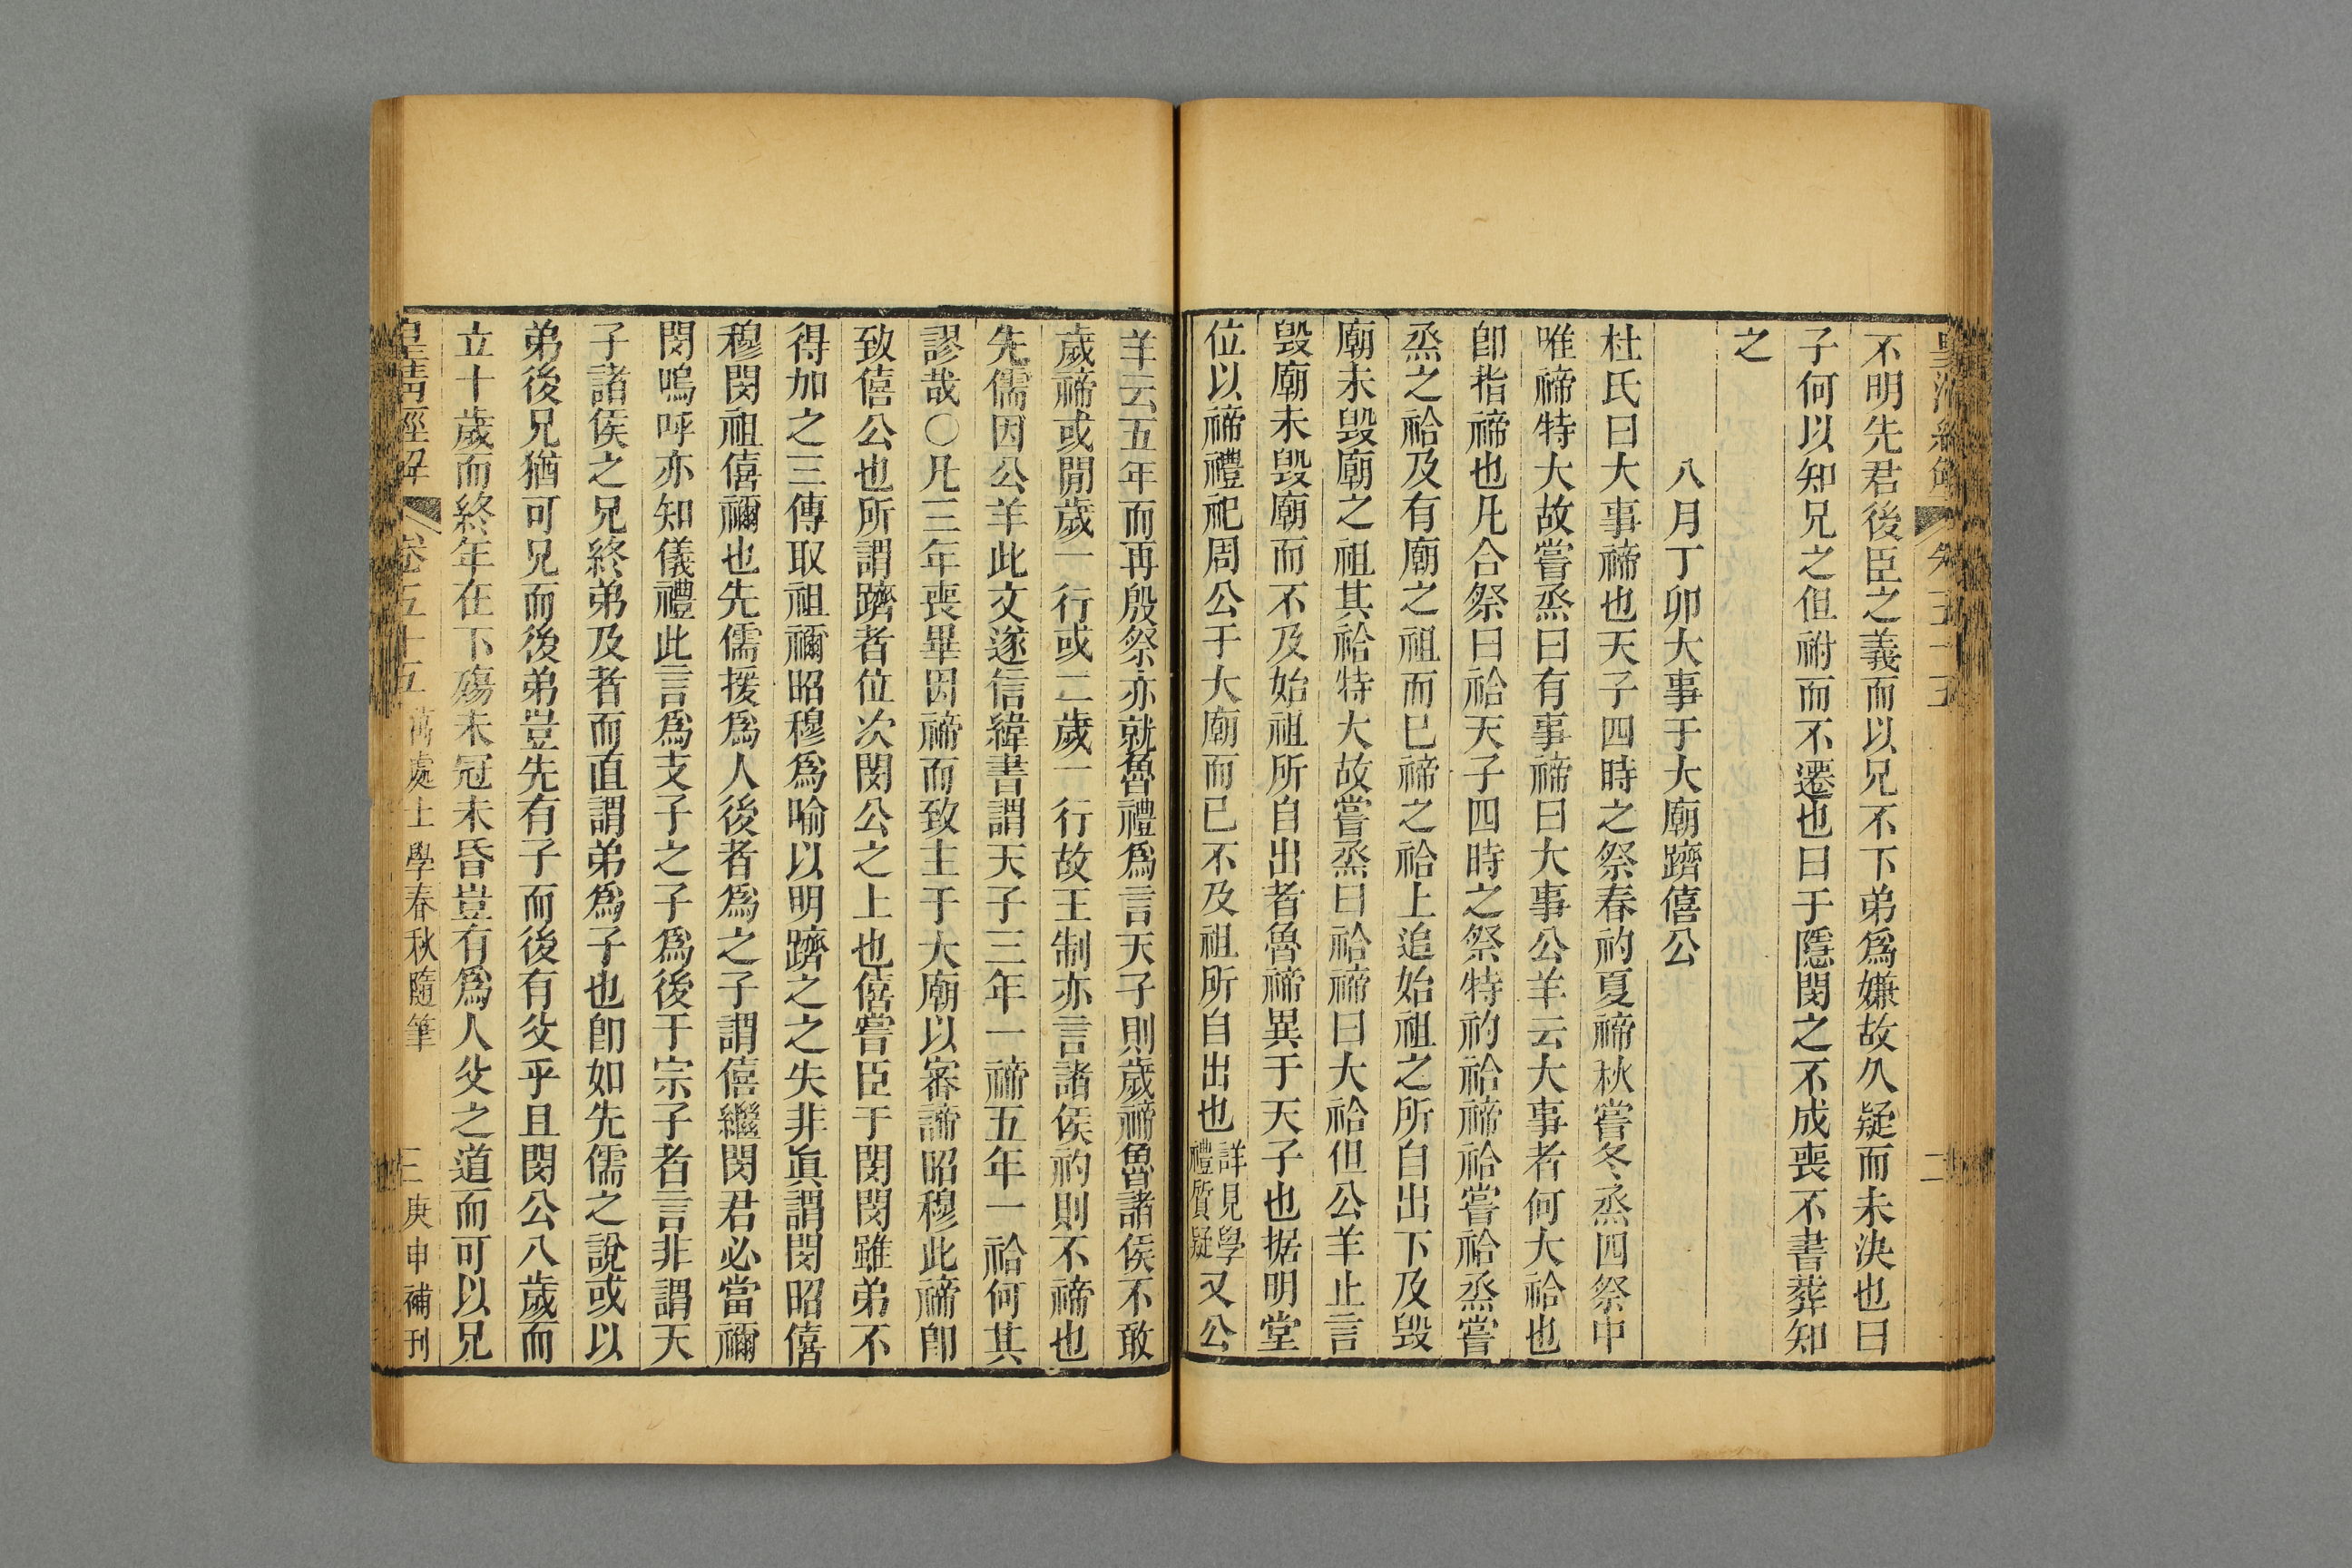 皇清經解 卷五十五 二
不明先君後臣之義而以兄不下弟爲嫌故久疑而未決也曰
子何以知兄之但祔而不遷也曰于隱閔之不成喪不書葬知
之
八月丁卯大事于大廟躋僖公
杜氏曰大事禘也天子四時之祭春礿夏禘秋嘗冬烝四祭中
唯禘特大故嘗烝曰有事禘曰大事公羊云大事者何大祫也
卽指禘也凡合祭曰祫天子四時之祭特礿祫禘祫嘗祫烝嘗
烝之祫及有廟之祖而已禘之祫上追始祖之所自出下及毀
廟未毀廟之祖其祫特大故嘗烝曰祫禘曰大祫但公羊止言
毀廟未毀廟而不及始祖所自出者魯禘異于天子也据明堂
位以禘禮祀周公于大廟而已不及祖所自出也詳見學禮質疑又公
羊云五年而再殷祭亦就魯禮爲言天子則歲禘魯諸侯不敢
歲禘或閒歲一行或二歲一行故王制亦言諸侯礿則不禘也
先儒因公羊此文遂信緯書謂天子三年一禘五年一祫何其
謬哉〇凡三年喪畢因禘而致主于大廟以審諦昭穆此禘卽
致僖公也所謂躋者位次閔公之上也僖嘗臣于閔閔雖弟不
得加之三傳取祖禰昭穆爲喻以明躋之之失非眞謂閔昭僖
穆閔祖僖禰也先儒援爲人後者爲之子謂僖繼閔君必當禰
閔嗚呼亦知儀禮此言爲支子之子爲後于宗子者言非謂天
子諸侯之兄終弟及者而直謂弟爲子也卽如先儒之說或以
弟後兄猶可兄而後弟豈先有子而後有父乎且閔公八歲而
立十歲而終年在下殤未冠未昏豈有爲人父之道而可以兄
皇清經解 卷五十五 萬處士學春秋隨筆 三 庚申補刊